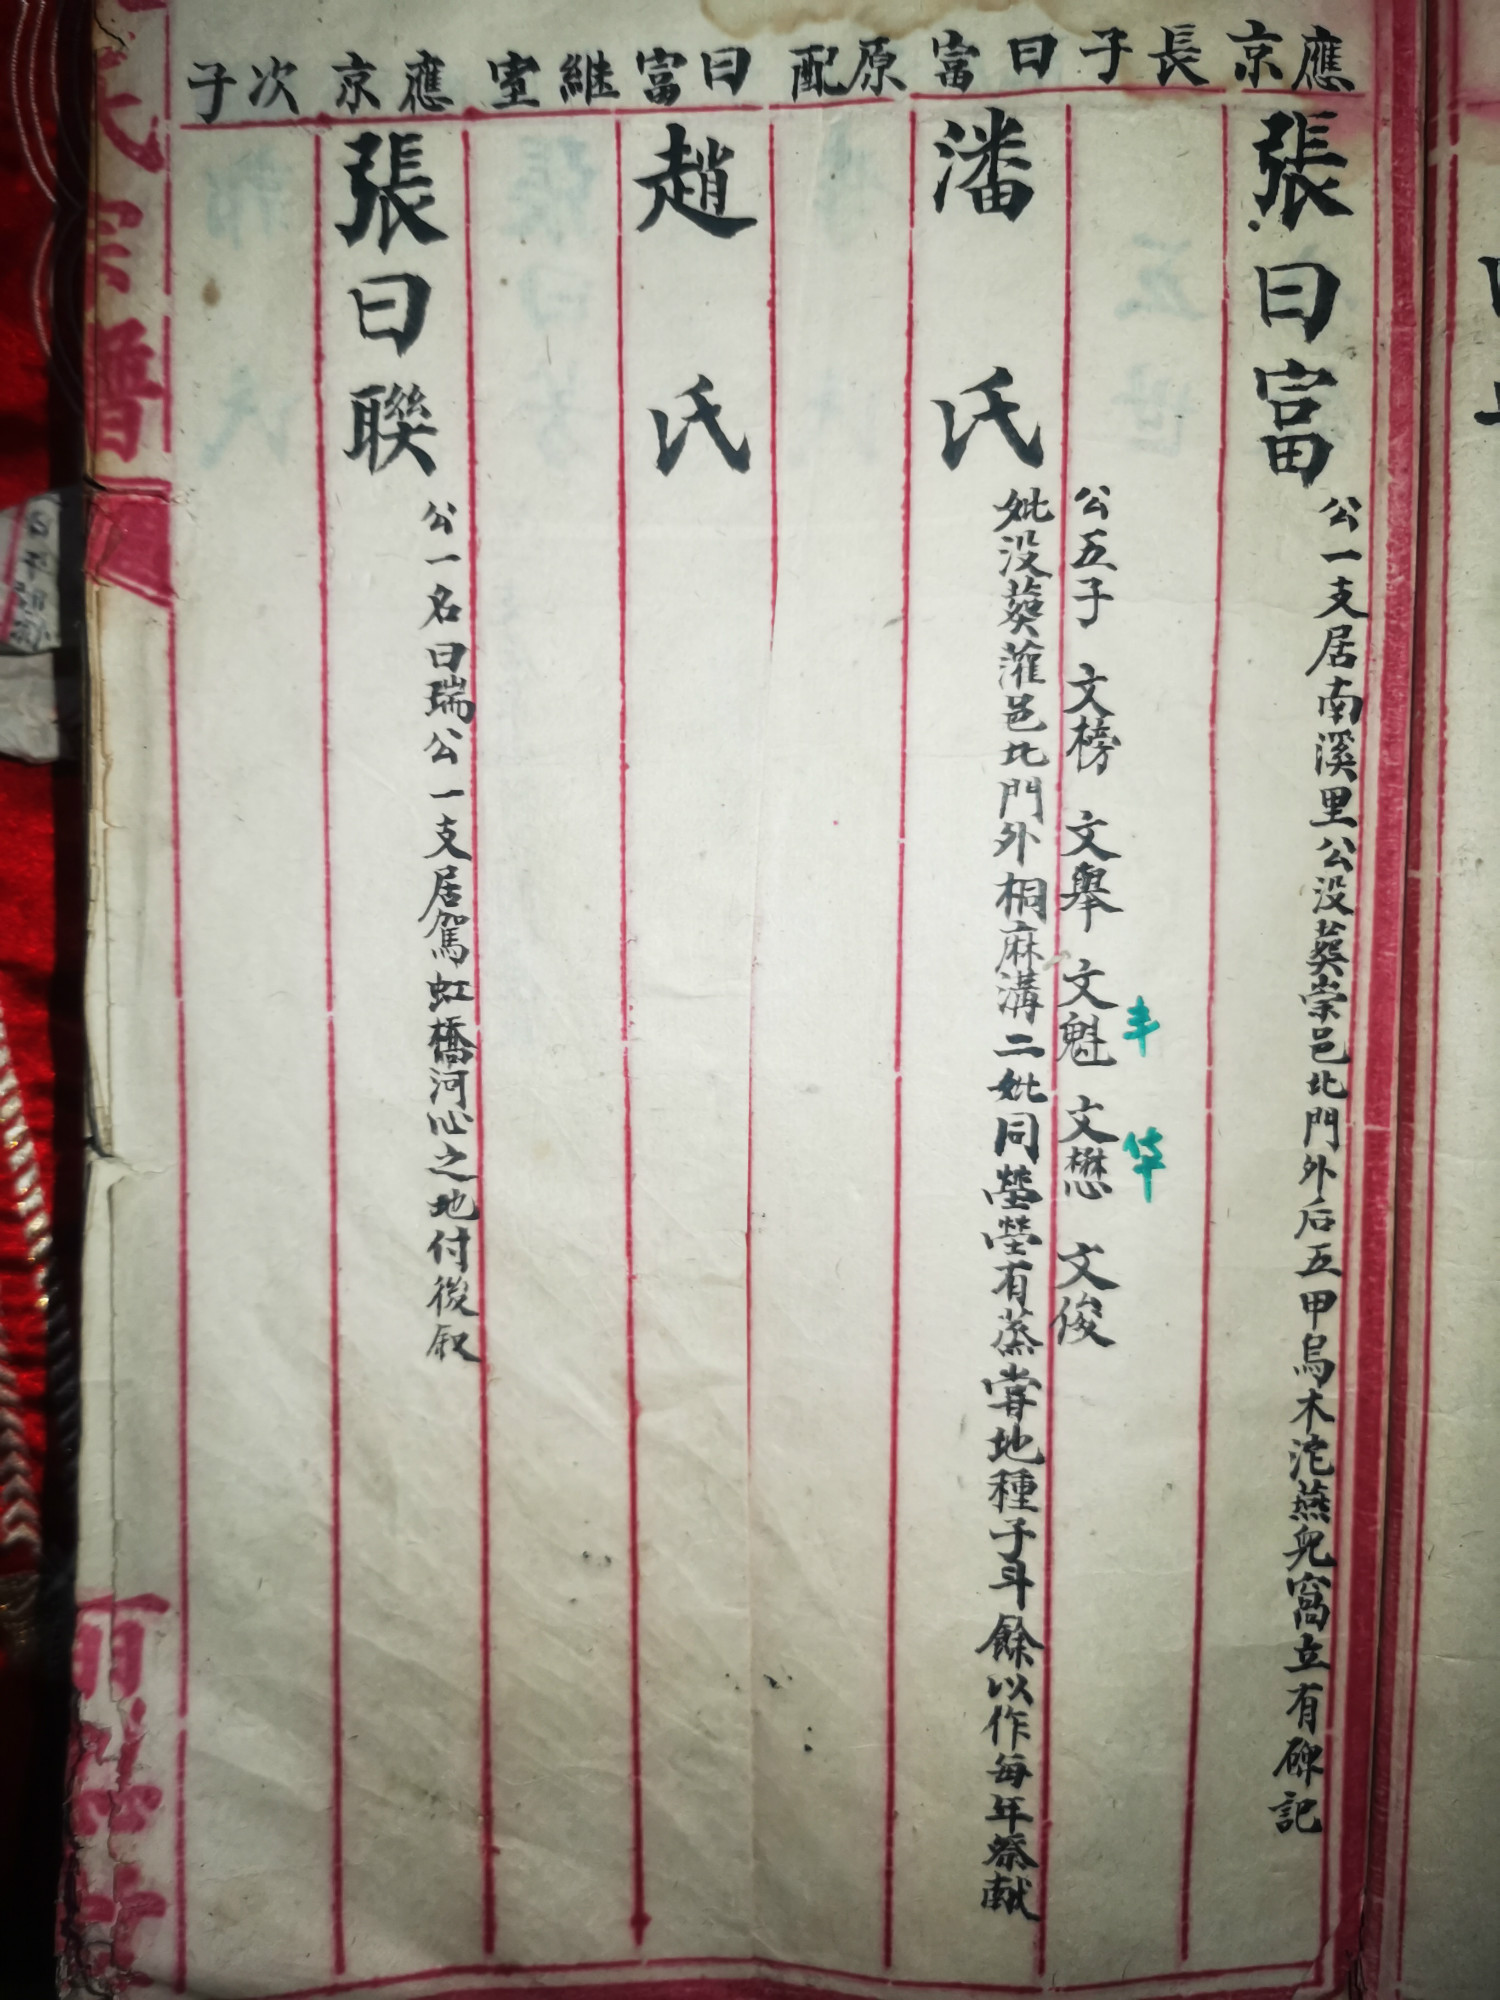 應京長子
張曰富
公一支居南溪里公没葬崇邑北門外后五甲烏木沱燕兒窩立有碑記
公五子 文榜 文舉 文魁 文懋 文俊
丰
华
曰富原配
潘氏
妣没葬灌邑北門外桐麻溝二妣同塋塋有蒸嘗地種子斗餘以作每年祭献
曰富継室
趙氏
應京次子
張曰聯
公一名曰瑞公一支居駕虹橋河心之地付後叙
氏宗譜